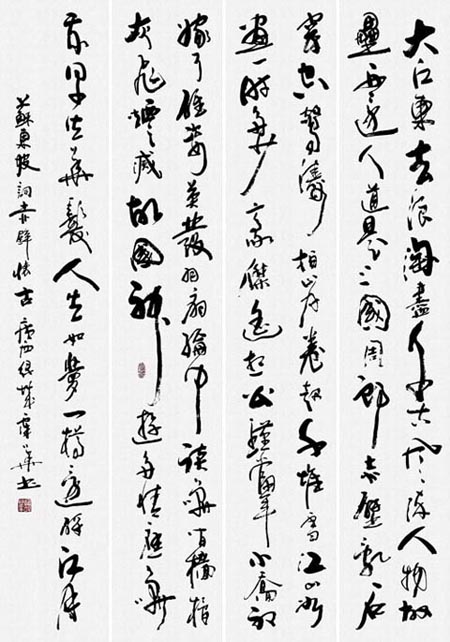 大江東去浪淘盡千古風流人物故
壘西邊人道是三國周郎赤壁亂石
穿空驚濤拍岸卷起千堆雪江山如
畫一時多少豪傑遙想公瑾當年小喬初
嫁了雄姿英發羽扇綸巾談笑間檣櫓
灰飛煙滅故國神遊多情應笑
我早生華髮人生如夢一樽還酹江月
蘇東坡詞赤壁懷古